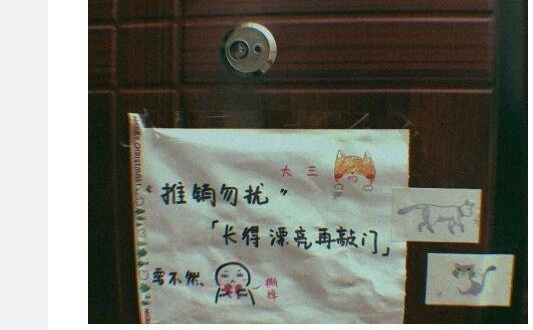 大三
“推销勿扰”
「长得漂亮再敲门」
要不然
撕掉